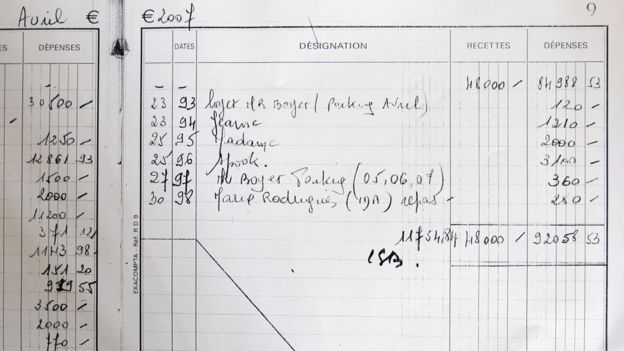 Avril €
ES DÉPENSES
-
30500 -
1250 -
12861 93
1500 -
2000 -
11200 -
371
98
151 20
55
3500 -
2000 -
770 -
€ 2007 9
DATES DÉSIGNATION RECETTES DÉPENSES
- - 48000 - 84988 53
23 93 loyer Mr Boyer / Parking Avril) 120 -
23 94 Jeanne 1210 -
25 95 Madame 2000 -
25 96 Spook. 3100 -
27 97 Mr Boyer Parking (05,06,07) 360 -
30 98 Rodrigues repas - 280 -
48000 - 92058 53
EXACOMPTA - Réf. R D 9